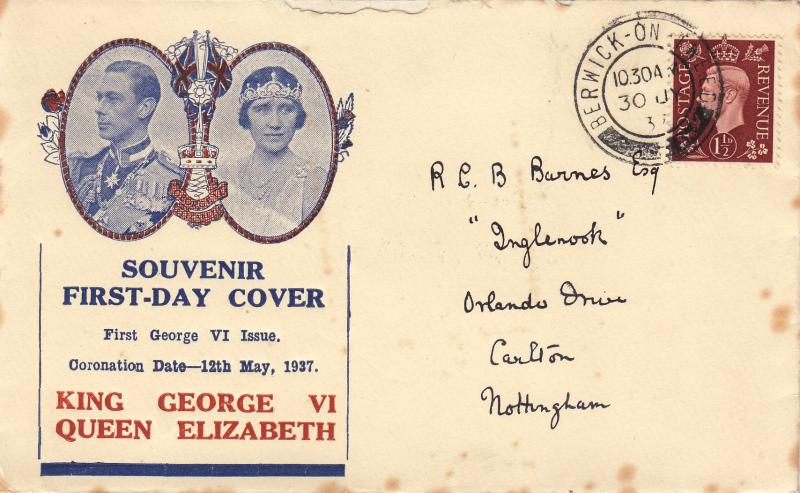 SOUVENIR
FIRST-DAY COVER
First George VI Issue.
Coronation Date—12th May, 1937.
KING GEORGE VI
QUEEN ELIZABETH
BERWICK-ON
10.30A
30 JY
37
POSTAGE
REVENUE
1½D
R C B Barnes Esq
"Inglenook"
Orlando Drive
Carlton
Nottingham